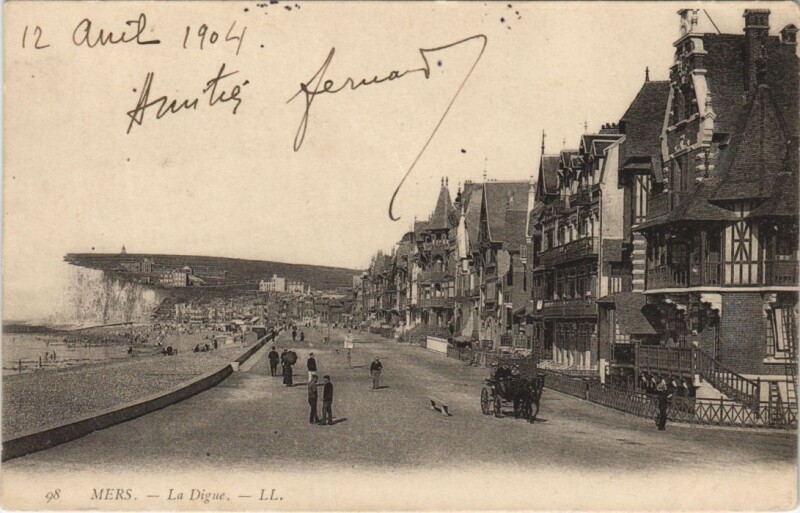 12 Avril 1904.
Amitiés Fernand
98 MERS. — La Digue. — LL.